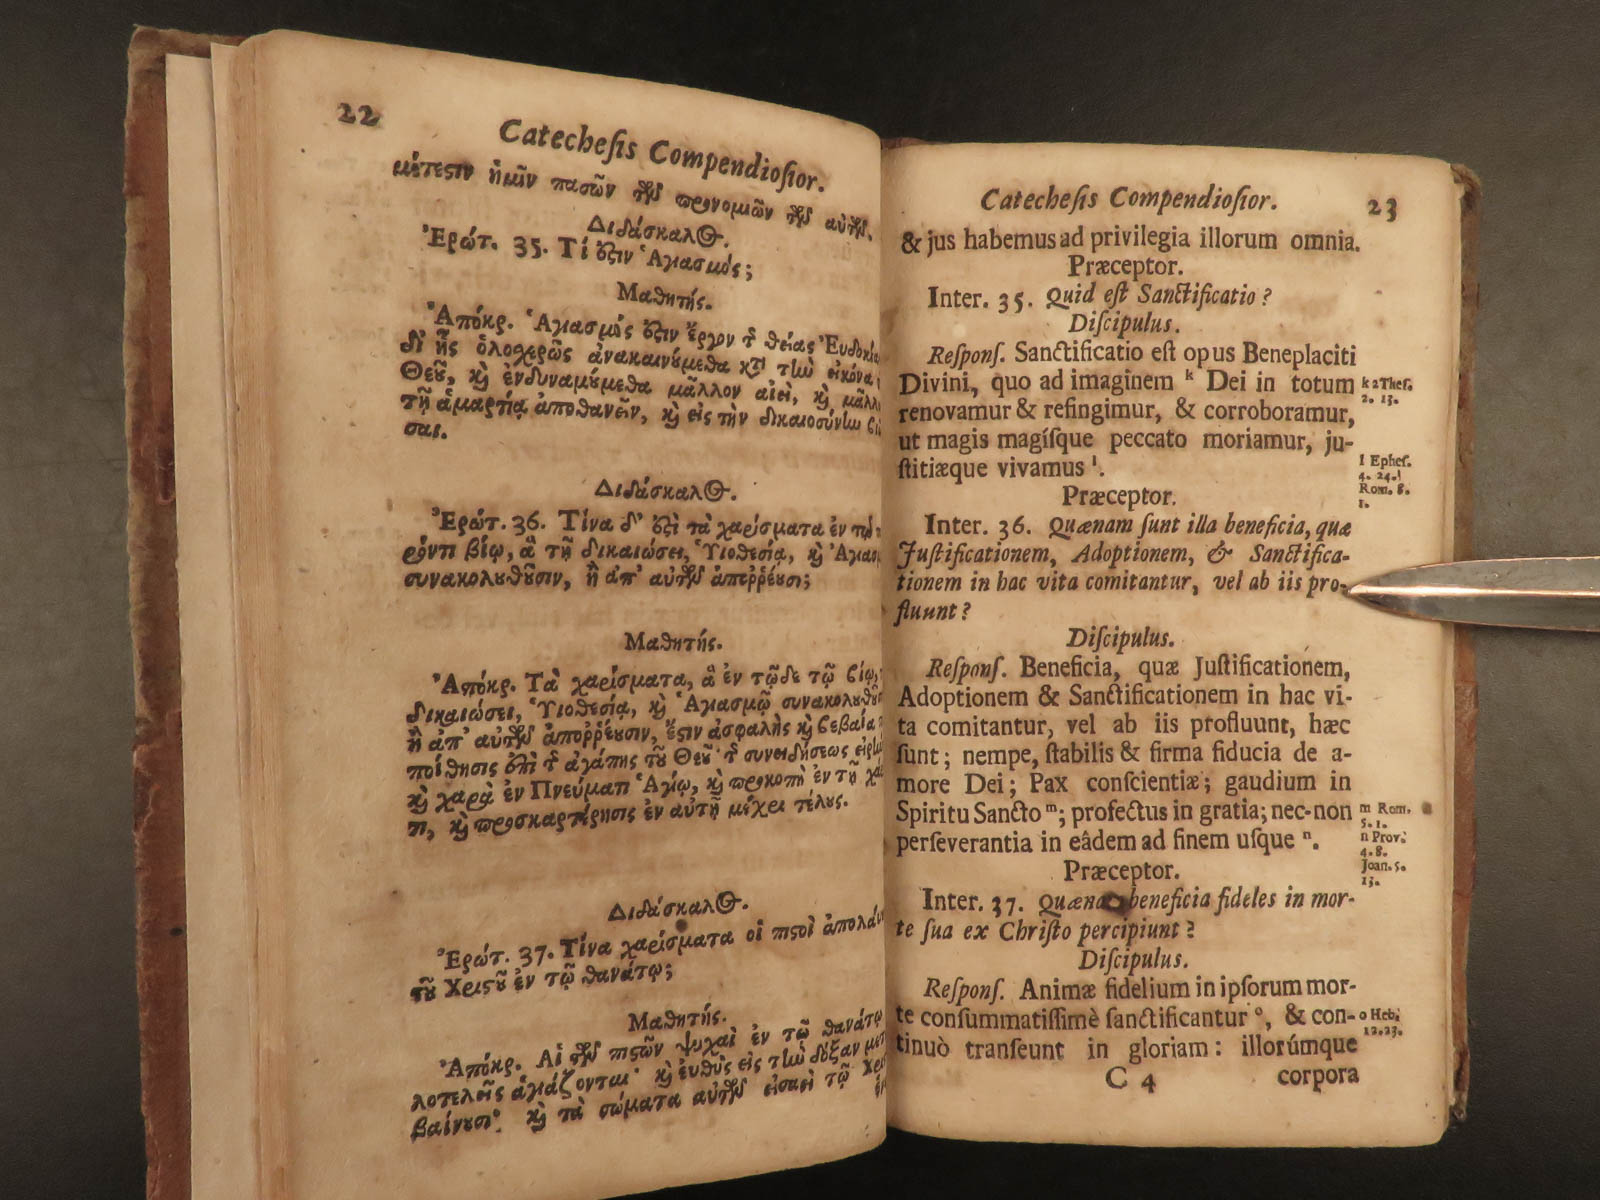 22
Catecheſis Compendioſior.
μέτεϛιν ἡμῖν πασῶν τῶν προνομιῶν τῶν αὐτῶν.
Διδάσκαλος.
Ἐρώτ. 35. Τί ἐϛιν Ἁγιασμός;
Μαθητής.
Ἀπόκρ. Ἁγιασμός ἐϛιν ἔργον τ̃ θείας Εὐδοκίας
δι' ἧς ὁλοχερῶς ἀνακαινούμεθα κατὰ τὴν εἰκόνα
Θεοῦ, καὶ ἐνδυναμούμεθα μᾶλλον αἰεὶ, καὶ
τῇ ἁμαρτίᾳ ἀποθανεῖν, καὶ εἰς τὴν δικαιοσύνην
σαι.
Διδάσκαλος.
Ἐρώτ. 36. Τίνα δ' ἐϛὶ τὰ χαρίσματα ἐν τῷ
ρόντι βίῳ, ἃ τῇ δικαιώσει, Ὑιοθεσίᾳ, καὶ
συνακολουθοῦσιν, ἢ ἀπ' αὐτῶν ἀπορρέουσι;
Μαθητής.
Ἀπόκρ. Τὰ χαρίσματα, ἃ ἐν τῷδε τῷ βίῳ,
δικαιώσει, Ὑιοθεσίᾳ, καὶ Ἁγιασμῷ
ἢ ἀπ' αὐτῶν ἀπορρέουσιν, ἔϛιν ἀσφαλὴς καὶ βεβαία
ποίθησις ἐπὶ τ̃ ἀγάπης τοῦ Θεοῦ· τ̃ συνειδήσεως
καὶ χαρὰ ἐν Πνεύματι Ἁγίῳ, καὶ προκοπὴ ἐν τῇ
τι, καὶ προσκαρτέρησις ἐν αὐτῇ μέχρι τέλους.
Διδάσκαλος.
Ἐρώτ. 37. Τίνα χαρίσματα οἱ πιϛοὶ
τοῦ Χριϛοῦ ἐν τῷ θανάτῳ;
Μαθητής.
Ἀπόκρ. Αἱ τῶν πιϛῶν ψυχαὶ ἐν τῷ θανάτῳ
λοτελεῖς ἁγιάζονται· καὶ εὐθὺς εἰς τὴν δόξαν
βαίνουσι· καὶ τὰ σώματα αὐτῶν εἰσαεὶ τῷ
Catecheſis Compendioſior. 23
& jus habemus ad privilegia illorum omnia.
Præceptor.
Inter. 35. Quid eſt Sanctificatio?
Diſcipulus.
Reſponſ. Sanctificatio eſt opus Beneplaciti
Divini, quo ad imaginem k Dei in totum
renovamur & refingimur, & corroboramur,
ut magis magíſque peccato moriamur, ju-
ſtitiæque vivamus l.
k 2 Theſ.
2. 13.
l Epheſ.
4. 24.
Rom. 8.
1.
Præceptor.
Inter. 36. Quænam ſunt illa beneficia, quæ
Juſtificationem, Adoptionem, & Sanctifica-
tionem in hac vita comitantur, vel ab iis pro-
fluunt?
Diſcipulus.
Reſponſ. Beneficia, quæ Juſtificationem,
Adoptionem & Sanctificationem in hac vi-
ta comitantur, vel ab iis profluunt, hæc
ſunt; nempe, ſtabilis & firma fiducia de a-
more Dei; Pax conſcientiæ; gaudium in
Spiritu Sancto m; profectus in gratia; nec-non
perſeverantia in eâdem ad finem uſque n.
m Rom.
5. 1.
n Prov.
4. 8.
Joan. 5.
13.
Præceptor.
Inter. 37. beneficia fideles in mor-
te ſua ex Chriſto percipiunt?
Diſcipulus.
Reſponſ. Animæ fidelium in ipſorum mor-
te conſummatiſſimè ſanctificantur o, & con-
tinuò tranſeunt in gloriam: illorúmque
o Heb.
12. 23.
C 4 corpora